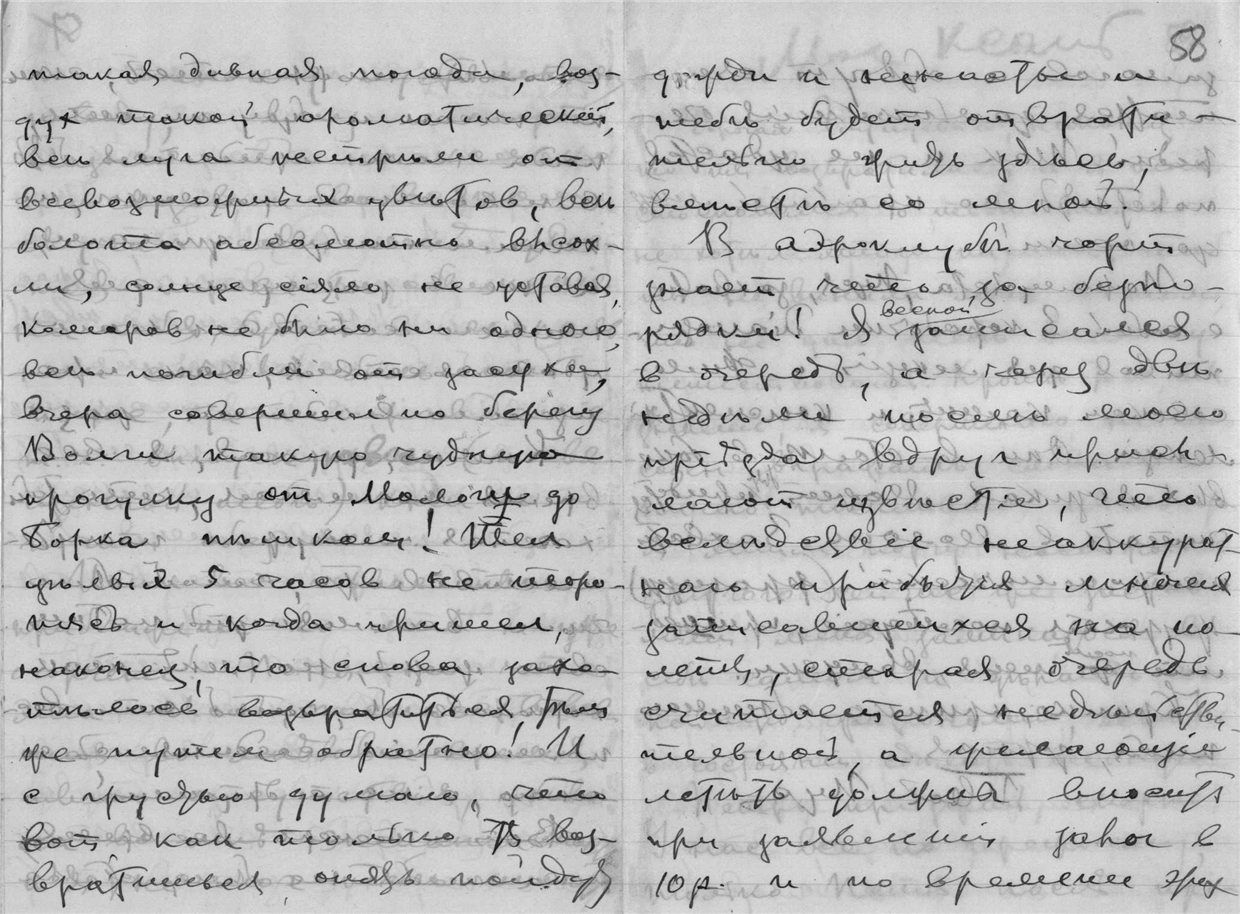 такая дивная погода, воз-
дух такой ароматический,
все луга пестрели от
всевозможных цвѣтов, все
болота абсолютно высох-
ли, солнце сіяло не уставая,
комаров не было ни одного,
все погибли от засухи,
вчера совершил по берегу
Волги такую чудную
прогулку от Мологи до
Борка пѣшком! Шел
цѣлых 5 часов не торо-
пясь и когда пришел,
наконец, то снова захо-
тѣлось возвратиться тѣм
же путем обратно! И
с грустью думаю, что
вот как только ты воз-
вратишься, опять пойдут
58
дожди и ненастье и
тебѣ будет отврати-
тельно жить здѣсь,
вмѣстѣ со мной!
В аэроклубѣ чорт
знает что за безпо-
рядки! Я весной записался
в очередь, а через двѣ
недѣли послѣ моего
пріѣзда вдруг присы-
лают извѣстіе, что
вслѣдствіе неаккурат-
наго прибытія многих
записавшихся на по-
леты, старая очередь
считается недѣйстви-
тельной, а желающіе
летѣть должны вносить
при заявленіи залог в
10 р. и по времени этих